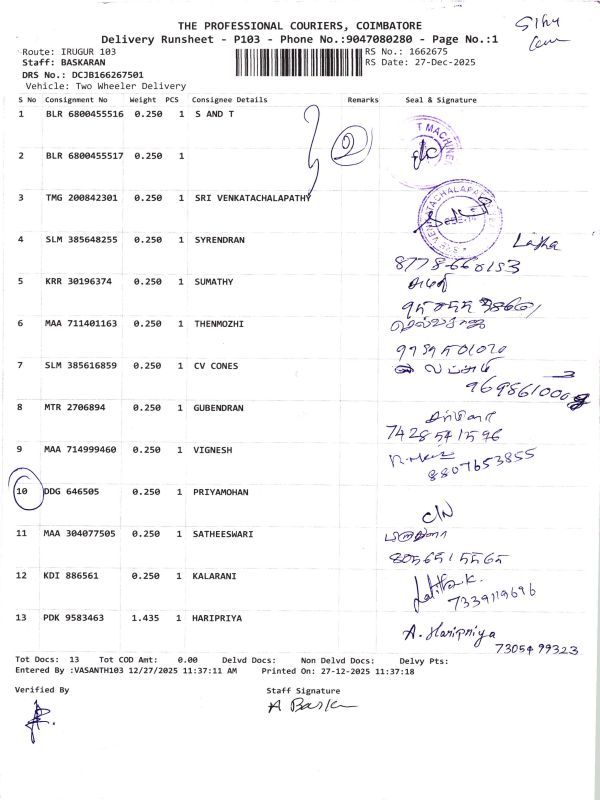 THE PROFESSIONAL COURIERS, COIMBATORE
Delivery Runsheet - P103 - Phone No.:9047080280 - Page No.:1
Route: IRUGUR 103 RS No.: 1662675
Staff: BASKARAN RS Date: 27-Dec-2025
DRS No.: DCJB166267501
Vehicle: Two Wheeler Delivery
S No Consignment No Weight PCS Consignee Details Remarks Seal & Signature
1 BLR 6800455516 0.250 1 S AND T
T MACHINER
2 BLR 6800455517 0.250 1
2
3 TMG 200842301 0.250 1 SRI VENKATACHALAPATHY
4 SLM 385648255 0.250 1 SYRENDRAN
Latha
8778660153
5 KRR 30196374 0.250 1 SUMATHY
6 MAA 711401163 0.250 1 THENMOZHI
7 SLM 385616859 0.250 1 CV CONES
8 MTR 2706894 0.250 1 GUBENDRAN
7428541596
9 MAA 714999460 0.250 1 VIGNESH
8807653855
10 DDG 646505 0.250 1 PRIYAMOHAN
C/N
11 MAA 304077505 0.250 1 SATHEESWARI
8056515565
12 KDI 886561 0.250 1 KALARANI
Lalitha.K.
7339119696
13 PDK 9583463 1.435 1 HARIPRIYA
A. Haripriya
7305499323
Tot Docs: 13 Tot COD Amt: 0.00 Delvd Docs: Non Delvd Docs: Delvy Pts:
Entered By :VASANTH103 12/27/2025 11:37:11 AM Printed On: 27-12-2025 11:37:18
Verified By Staff Signature
A Bask